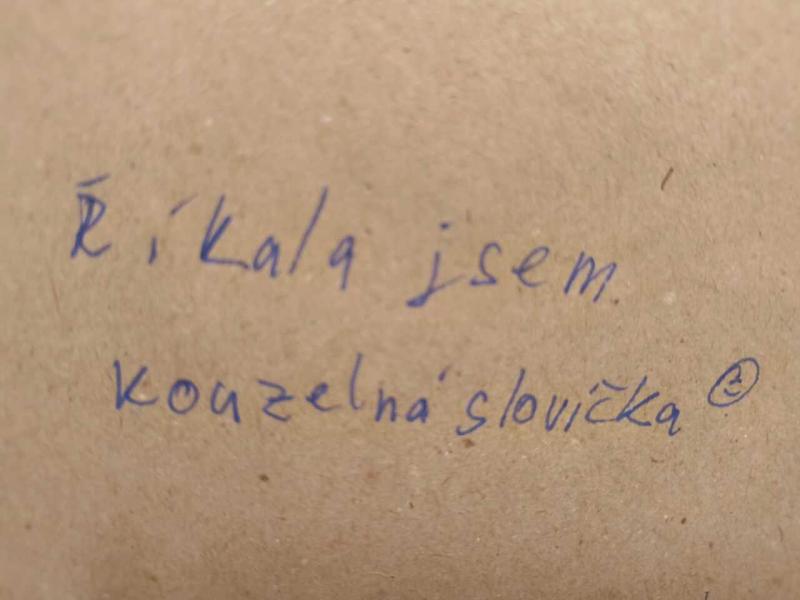 Říkala jsem
kouzelná slovíčka ☺